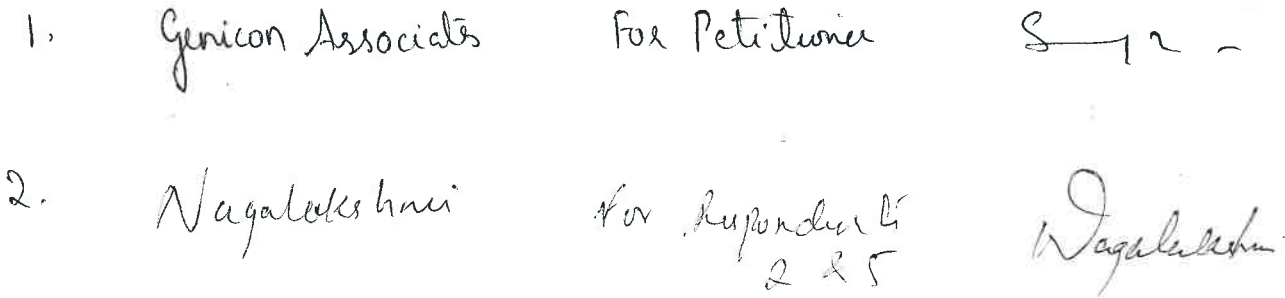 1. Genicon Associates For Petitioner
2. Nagalakshmi For Respondents Nagalakshmi
2 & 5